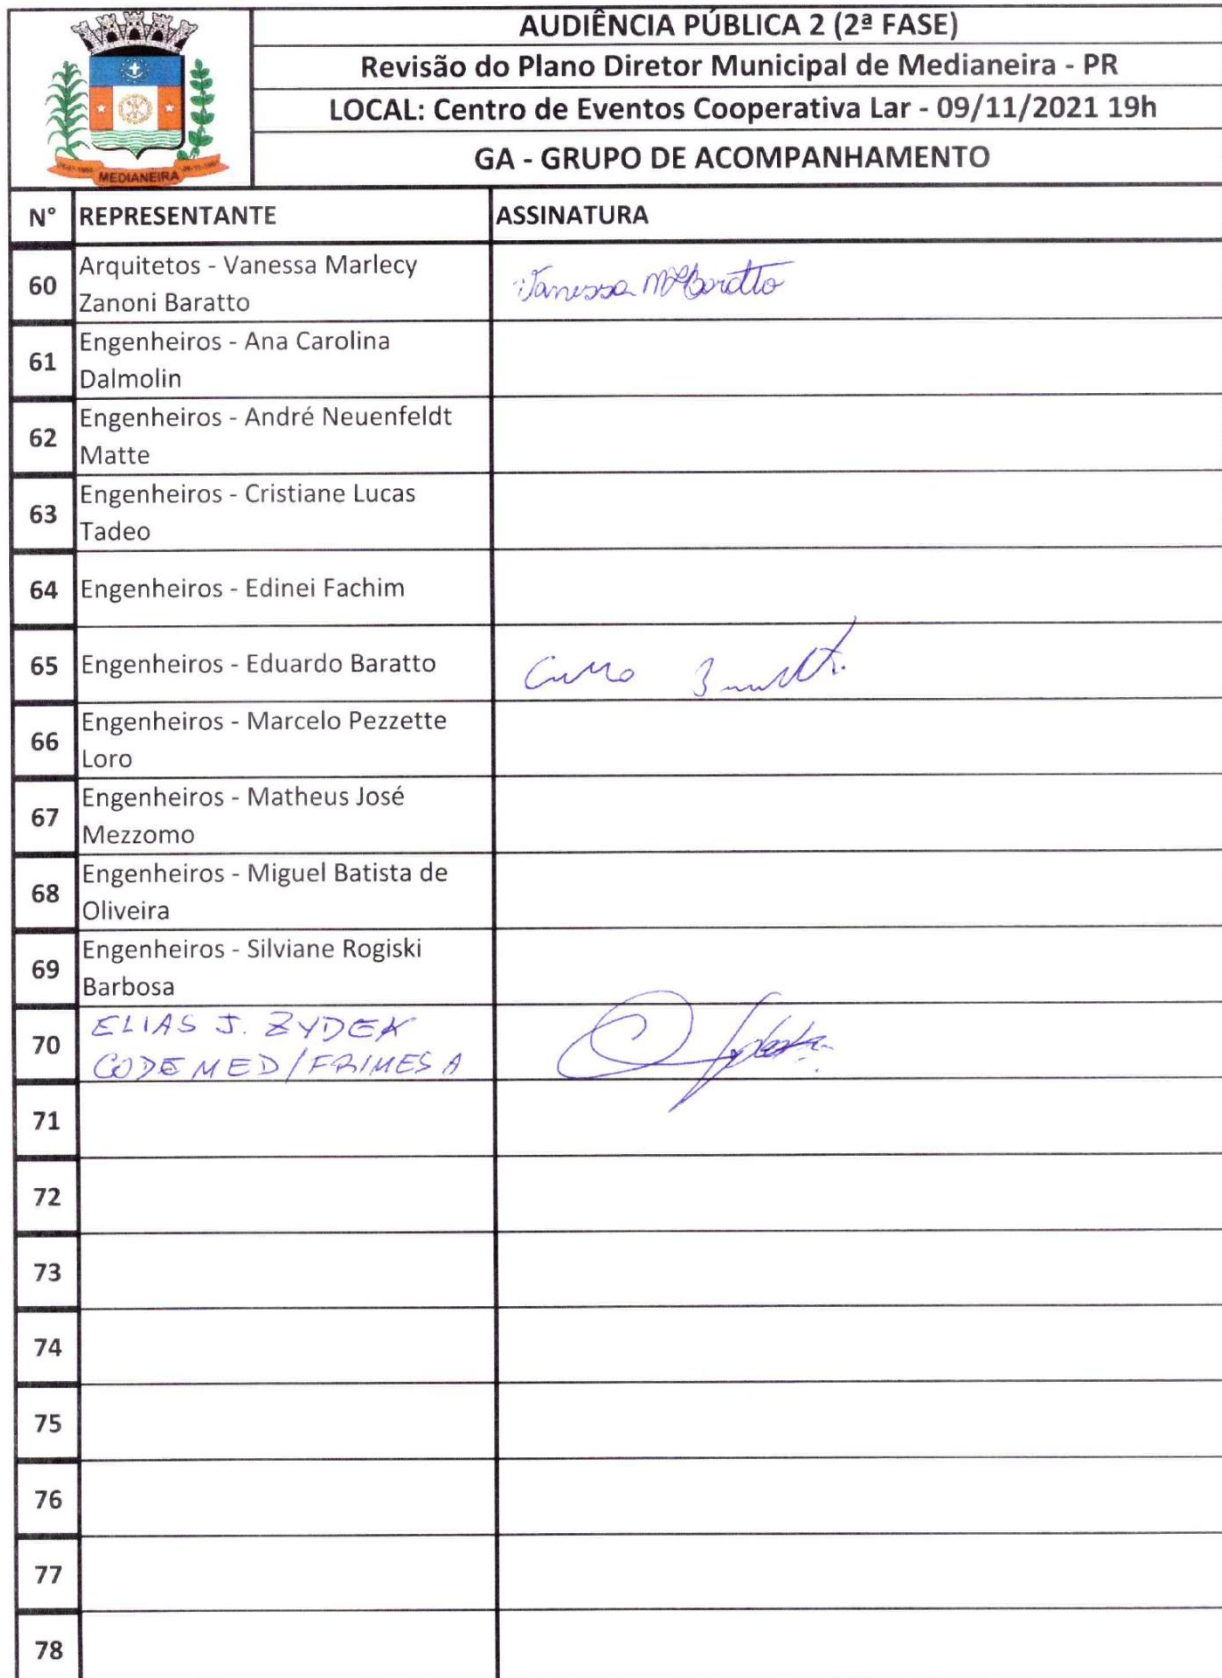 AUDIÊNCIA PÚBLICA 2 (2ª FASE)
Revisão do Plano Diretor Municipal de Medianeira - PR
LOCAL: Centro de Eventos Cooperativa Lar - 09/11/2021 19h
GA - GRUPO DE ACOMPANHAMENTO
MEDIANEIRA
N° REPRESENTANTE ASSINATURA
60 Arquitetos - Vanessa Marlecy
Zanoni Baratto
Vanessa MZBaratto
61 Engenheiros - Ana Carolina
Dalmolin
62 Engenheiros - André Neuenfeldt
Matte
63 Engenheiros - Cristiane Lucas
Tadeo
64 Engenheiros - Edinei Fachim
65 Engenheiros - Eduardo Baratto
66 Engenheiros - Marcelo Pezzette
Loro
67 Engenheiros - Matheus José
Mezzomo
68 Engenheiros - Miguel Batista de
Oliveira
69 Engenheiros - Silviane Rogiski
Barbosa
70 ELIAS J. ZYDEK
CODEMED/FRIMESA
71
72
73
74
75
76
77
78